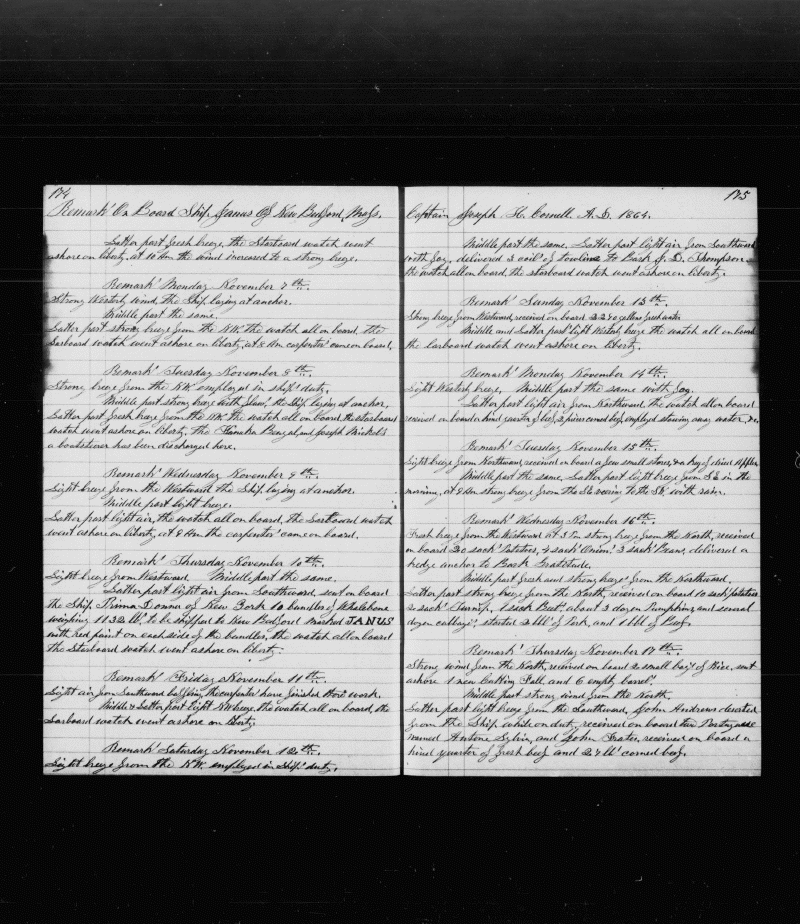 174
Remark's On Board Ship Janus Of New Bedford, Mass.
Latter part fresh breeze, the Starboard watch went
ashore on liberty, at 10 Am the wind increased to a strong breeze.
Remark's Monday November 7th.
Strong Westerly wind, the Ship laying at anchor.
Middle part the same.
Latter part strong breeze from the NW. the watch all on board, the
Larboard watch went ashore on liberty, at 8 Am carpenters came on board.
Remark's Tuesday November 8th.
Strong breeze from the NW employed in ship's duty.
Middle part strong breeze with flaws, the Ship laying at anchor.
Latter part fresh breeze from the NW. the watch all on board, the starboard
watch went ashore on liberty, the Kanaka and Joseph
a boatsteerer has been discharged here.
Remark's Wednesday November 9th.
Light breeze from the Westward the Ship laying at anchor.
Middle part light breeze.
Latter part light air, the watch all on board, the Larboard watch
went ashore on liberty, at 8 Am the carpenters came on board.
Remark's Thursday November 10th.
Light breeze from Westward. Middle part the same.
Latter part light air from Southward, sent on board
the Ship Prima Donna of New York 10 bundles of Whalebone
weighing 1132 lbs. to be shipped to New Bedford marked JANUS
with red paint on each side of the bundles, the watch all on board
the Starboard watch went ashore on liberty.
Remark's Friday November 11th.
Light air from Southward baffling, the carpenters have finished their work.
Middle & Latter part light NW breeze, the watch all on board, the
Larboard watch went ashore on liberty.
Remark's Saturday November 12th.
Light breeze from the NW. employed in Ship's duty.
175
Captain Joseph H. Cornell A.D. 1864.
Middle part the same. Latter part light air from Southward
with fog, delivered 2 coils of towline to Bark J. D. Thompson
the watch all on board, the starboard watch went ashore on liberty.
Remark's Sunday November 13th.
Strong breeze from Westward, received on board 2240 gallons fresh water.
Middle and Latter part light Westerly breeze the watch all on board
the Larboard watch went ashore on liberty.
Remark's Monday November 14th.
Light Westerly breeze. Middle part the same with fog.
Latter part light air from Northward the watch all on board
received on board a hind quarter of beef, 2 pieces corned beef, employed stowing away water, &c.
Remark's Tuesday November 15th.
Light breeze from Northward, received on board a few small stores, & a keg of dried Apples
Middle part the same, Latter part light breeze from SE in the
morning, at 9 Am strong breeze from the SE veering to the SW with rain.
Remark's Wednesday November 16th.
Fresh breeze from the Westward at 3 Pm strong breeze from the North, received
on board 20 sacks Potatoes, 4 sacks Onions, 3 sacks Beans, delivered a
kedge anchor to Bark Gratitude.
Middle part fresh and strong breezes from the Northward.
Latter part strong breeze from the North, received on board 10 sacks potatoes
2 sacks Turnips, 1 sack Beets about 3 dozen Pumpkins and several
dozen cabbages, started 2 bbls of Pork, and 1 bbl of Beef.
Remark's Thursday November 17th.
Strong wind from the North, received on board 2 small bags of Rice, sent
ashore 1 new Cutting Fall, and 6 empty barrels.
Middle part strong wind from the North.
Latter part light breeze from the Southward, John Andrews deserted
from the Ship while on duty, received on board two Portuguese
named Antone Sylvia, and John Frates, received on board a
hind quarter of fresh beef and 24 lbs corned beef.